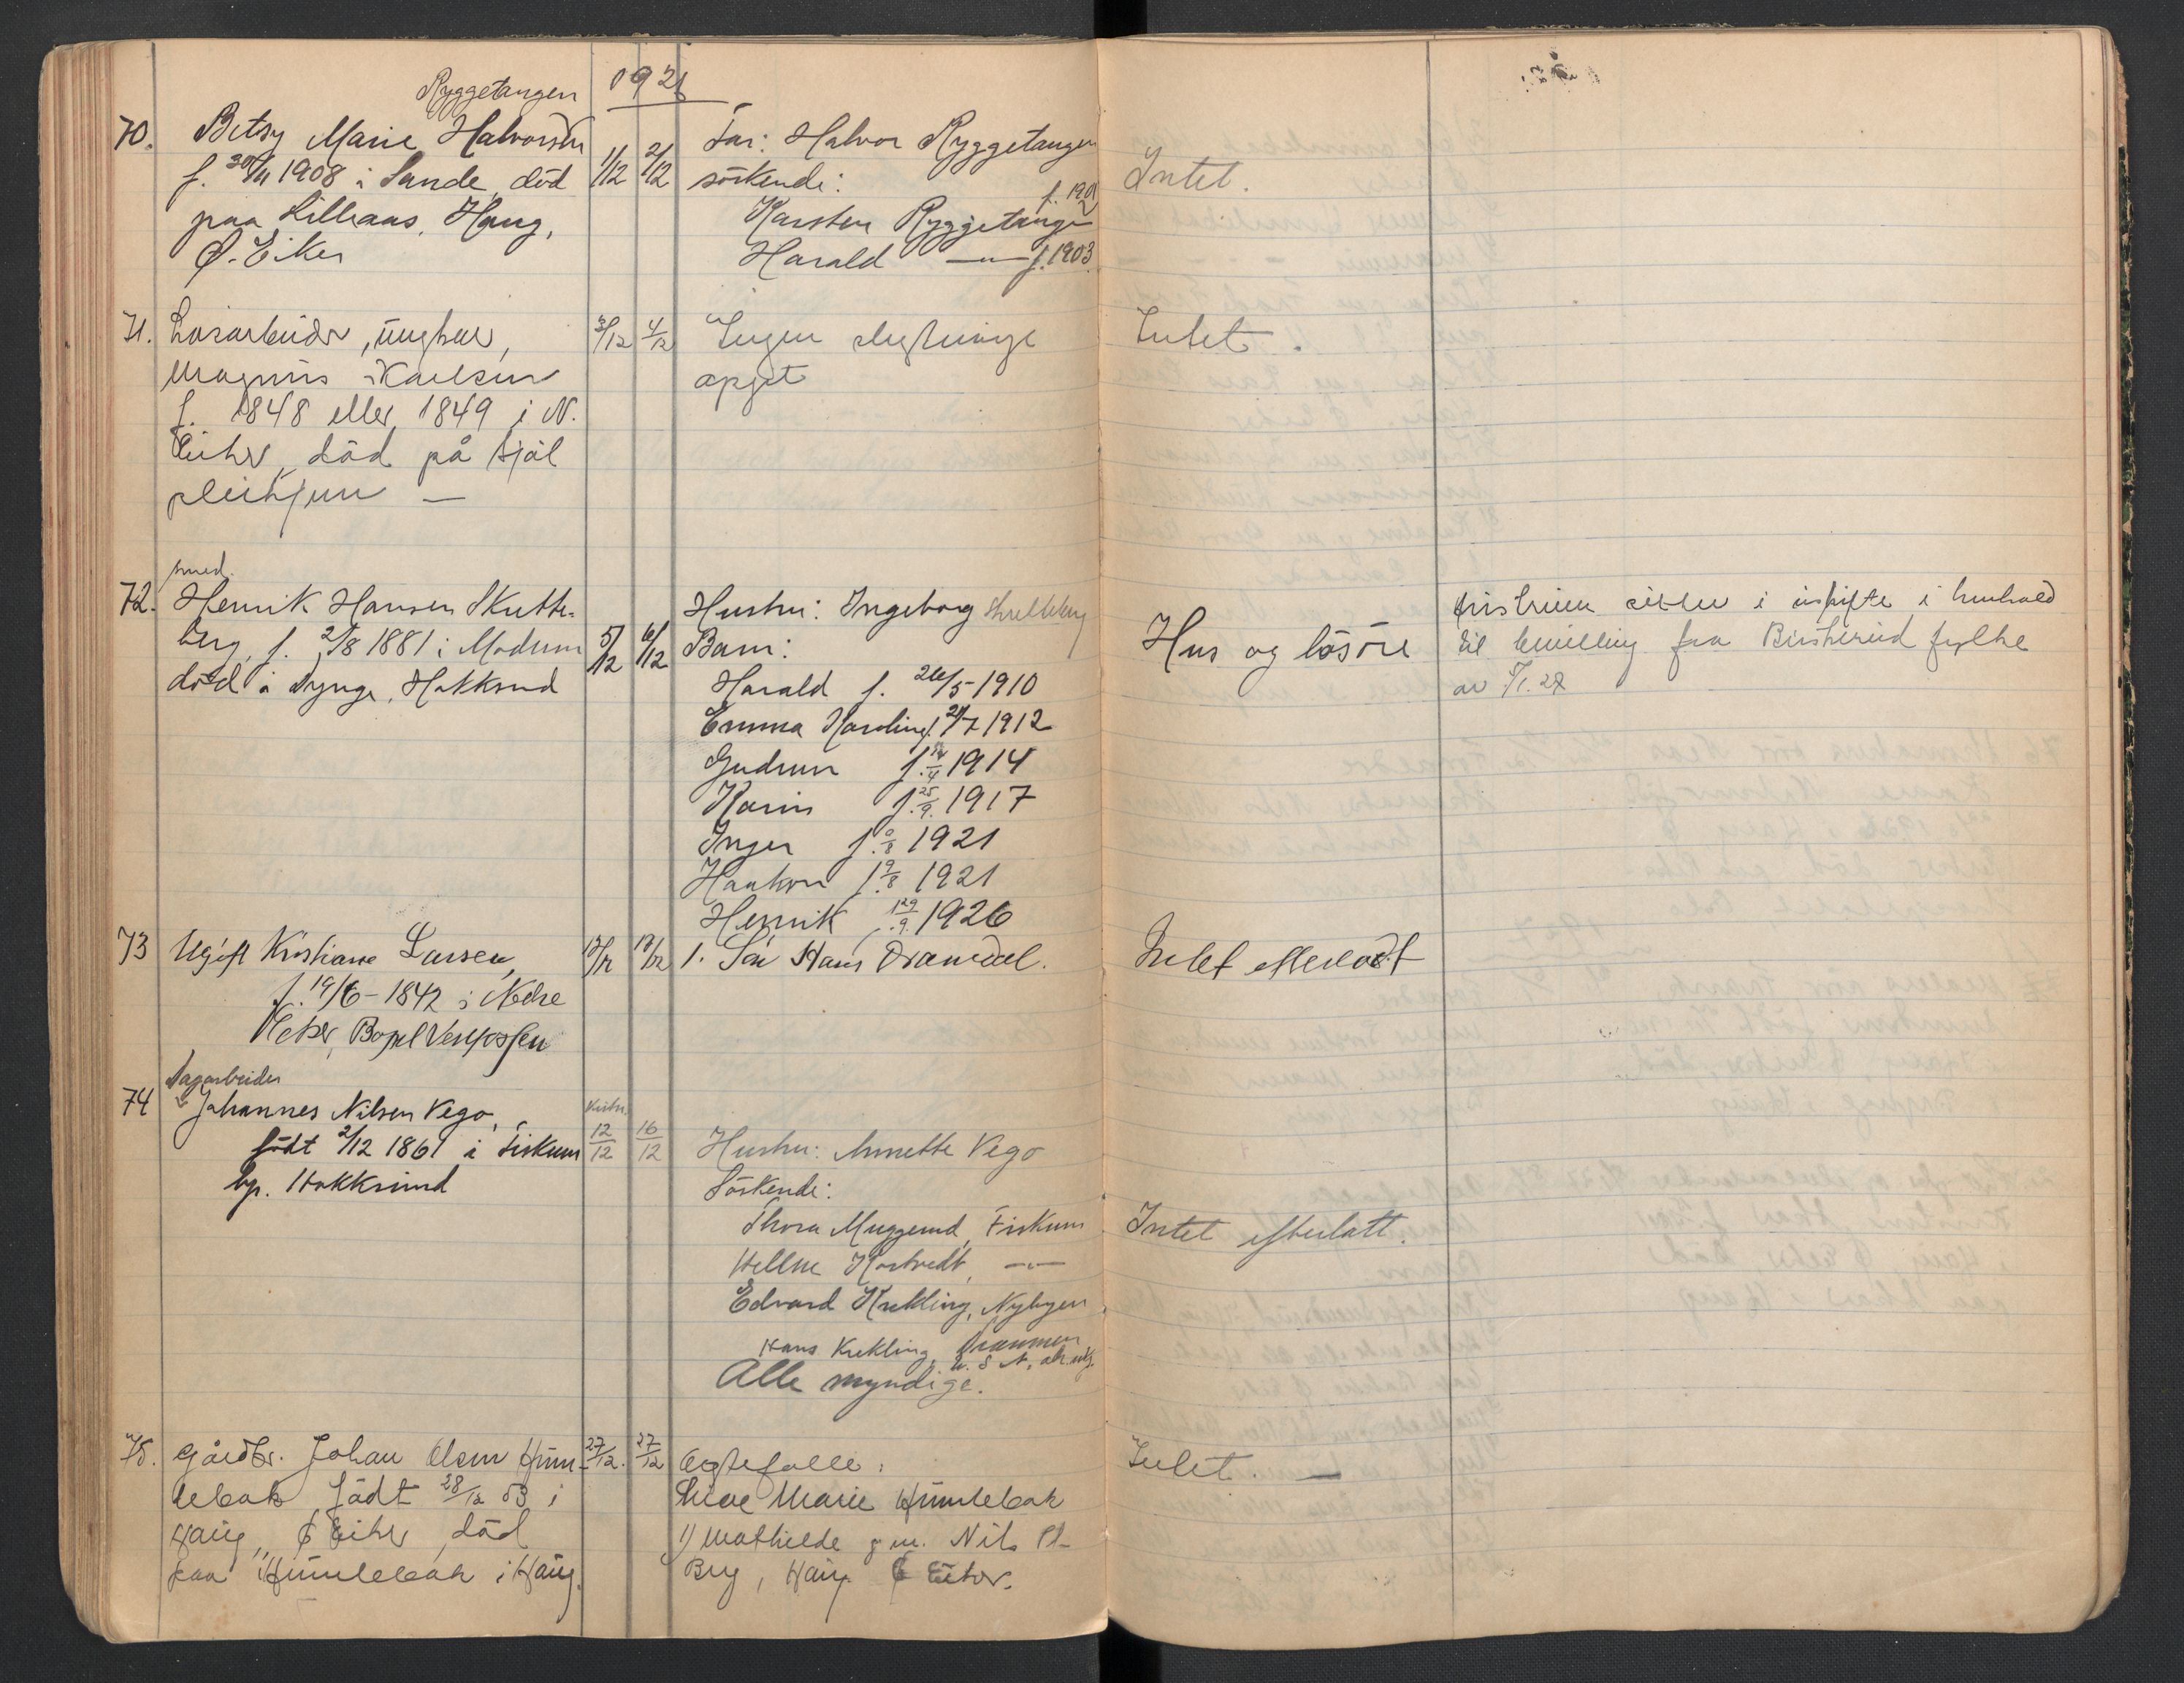 Ryggetangen 1921
70. Betsy Marie Halvorsen 1/12 2/12 Far: Halvor Ryggetangen
f. 20/11 1908 i Sande, død søskende: Intet.
paa Lilleaas, Haug, Karsten Ryggetangen f. 1901
Ø. Eiker Harald —"— f. 1903
71. Løsarbeider, ungkar, 3/12 4/12 Ingen slegtninge Intet.
Magnus Karlsen opgit
f. 1848 eller 1849 i N.
Eiker, død på
pleiehjem —
smed.
72. Henrik Hansen Skutte- Hustru: Ingeborg Skutteberg
berg, f. 2/8 1881 i Modum 5/12 6/12 Barn: Hus og løsøre
død i Lynge, Hokksund
Harald f. 26/5 1910
Emma Karoline f. 21/7 1912
Gudrun f. 1914
Karin f. 25/9. 1917
Inger f. 9/8 1921
Haakon f. 9/8 1921
Henrik f. 29/9. 1926
Hustruen sitter i uskifte i henhold
til bevilling fra Buskerud fylke
av 7/1. 27
73 Ugift Kristiane Larsen, 13/12 13/12 1. Søn Hans Dramdal. Intet efterladt
f. 19/6 - 1842 i Nedre
Eker, Bopel Vestfossen
Dagarbeider
74 Johannes Nilsen Vego,
født 2/12 1861 i Fiskum 12/12 16/12 Hustru: Annette Vego
bp. Hokksund Søskende:
Thora Muggerud, Fiskum Intet efterlatt.
Helene Kortvedt, —"—
Edvard Krekling, Nybyen
Hans Krekling, Drammen
Alle myndige.
75. Gårdbr. Johan Olsen Hum- 27/12. 27/12 Egtefælle: Intet. —
lebak født 28/12 53 i Marie Humlebak
Haug, Ø Eiker, død 1) Mathilde g.m. Nils
paa Humlebak i Haug. Berg, Haug Ø Eiker.